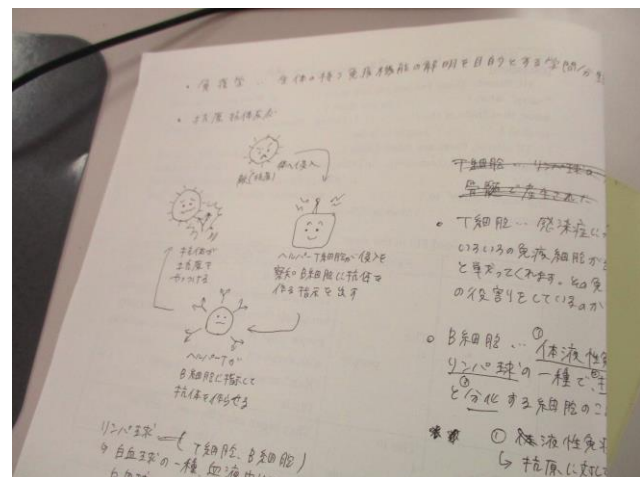 ・免疫学‥生体の持つ免疫機能の解明を目的とする学問分野
・抗原抗体反応
体へ侵入
ヘルパーT細胞が侵入を
察知 B細胞に抗体を
作る指示を出す
抗体が
抗原を
やっつける
ヘルパーTが
B細胞に指示して
抗体を作らせる
リンパ球 T細胞、B細胞)
白血球の一種
T細胞‥リンパ球の
骨髄で産生された
・T細胞‥感染症に
いろいろの免疫細胞が
と卓だってくれます。その免
の役割りをしているのが
・B細胞‥ ①体液性免
リンパ球の一種で、
と分化する細胞のこ
①体液性免疫
↳抗原に対して